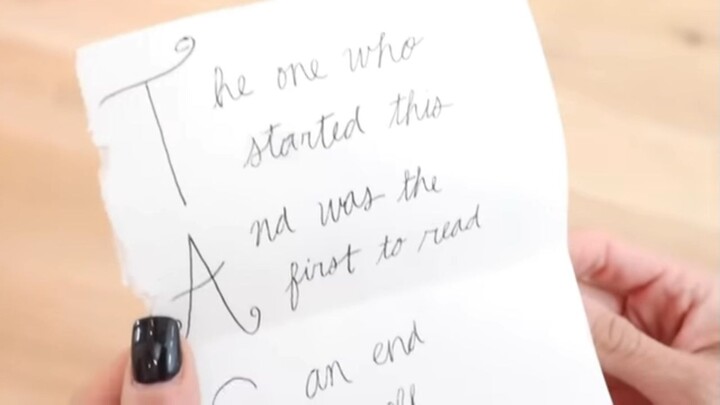 The one who
started this
And was the
first to read
Can end